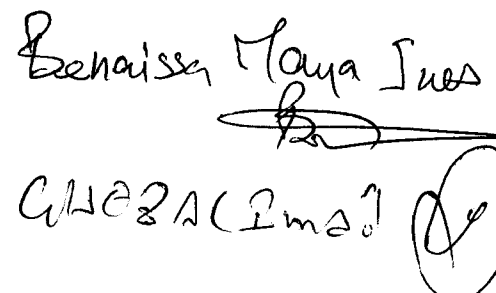 Benaissa Maya Ines
GHEZAL Imad